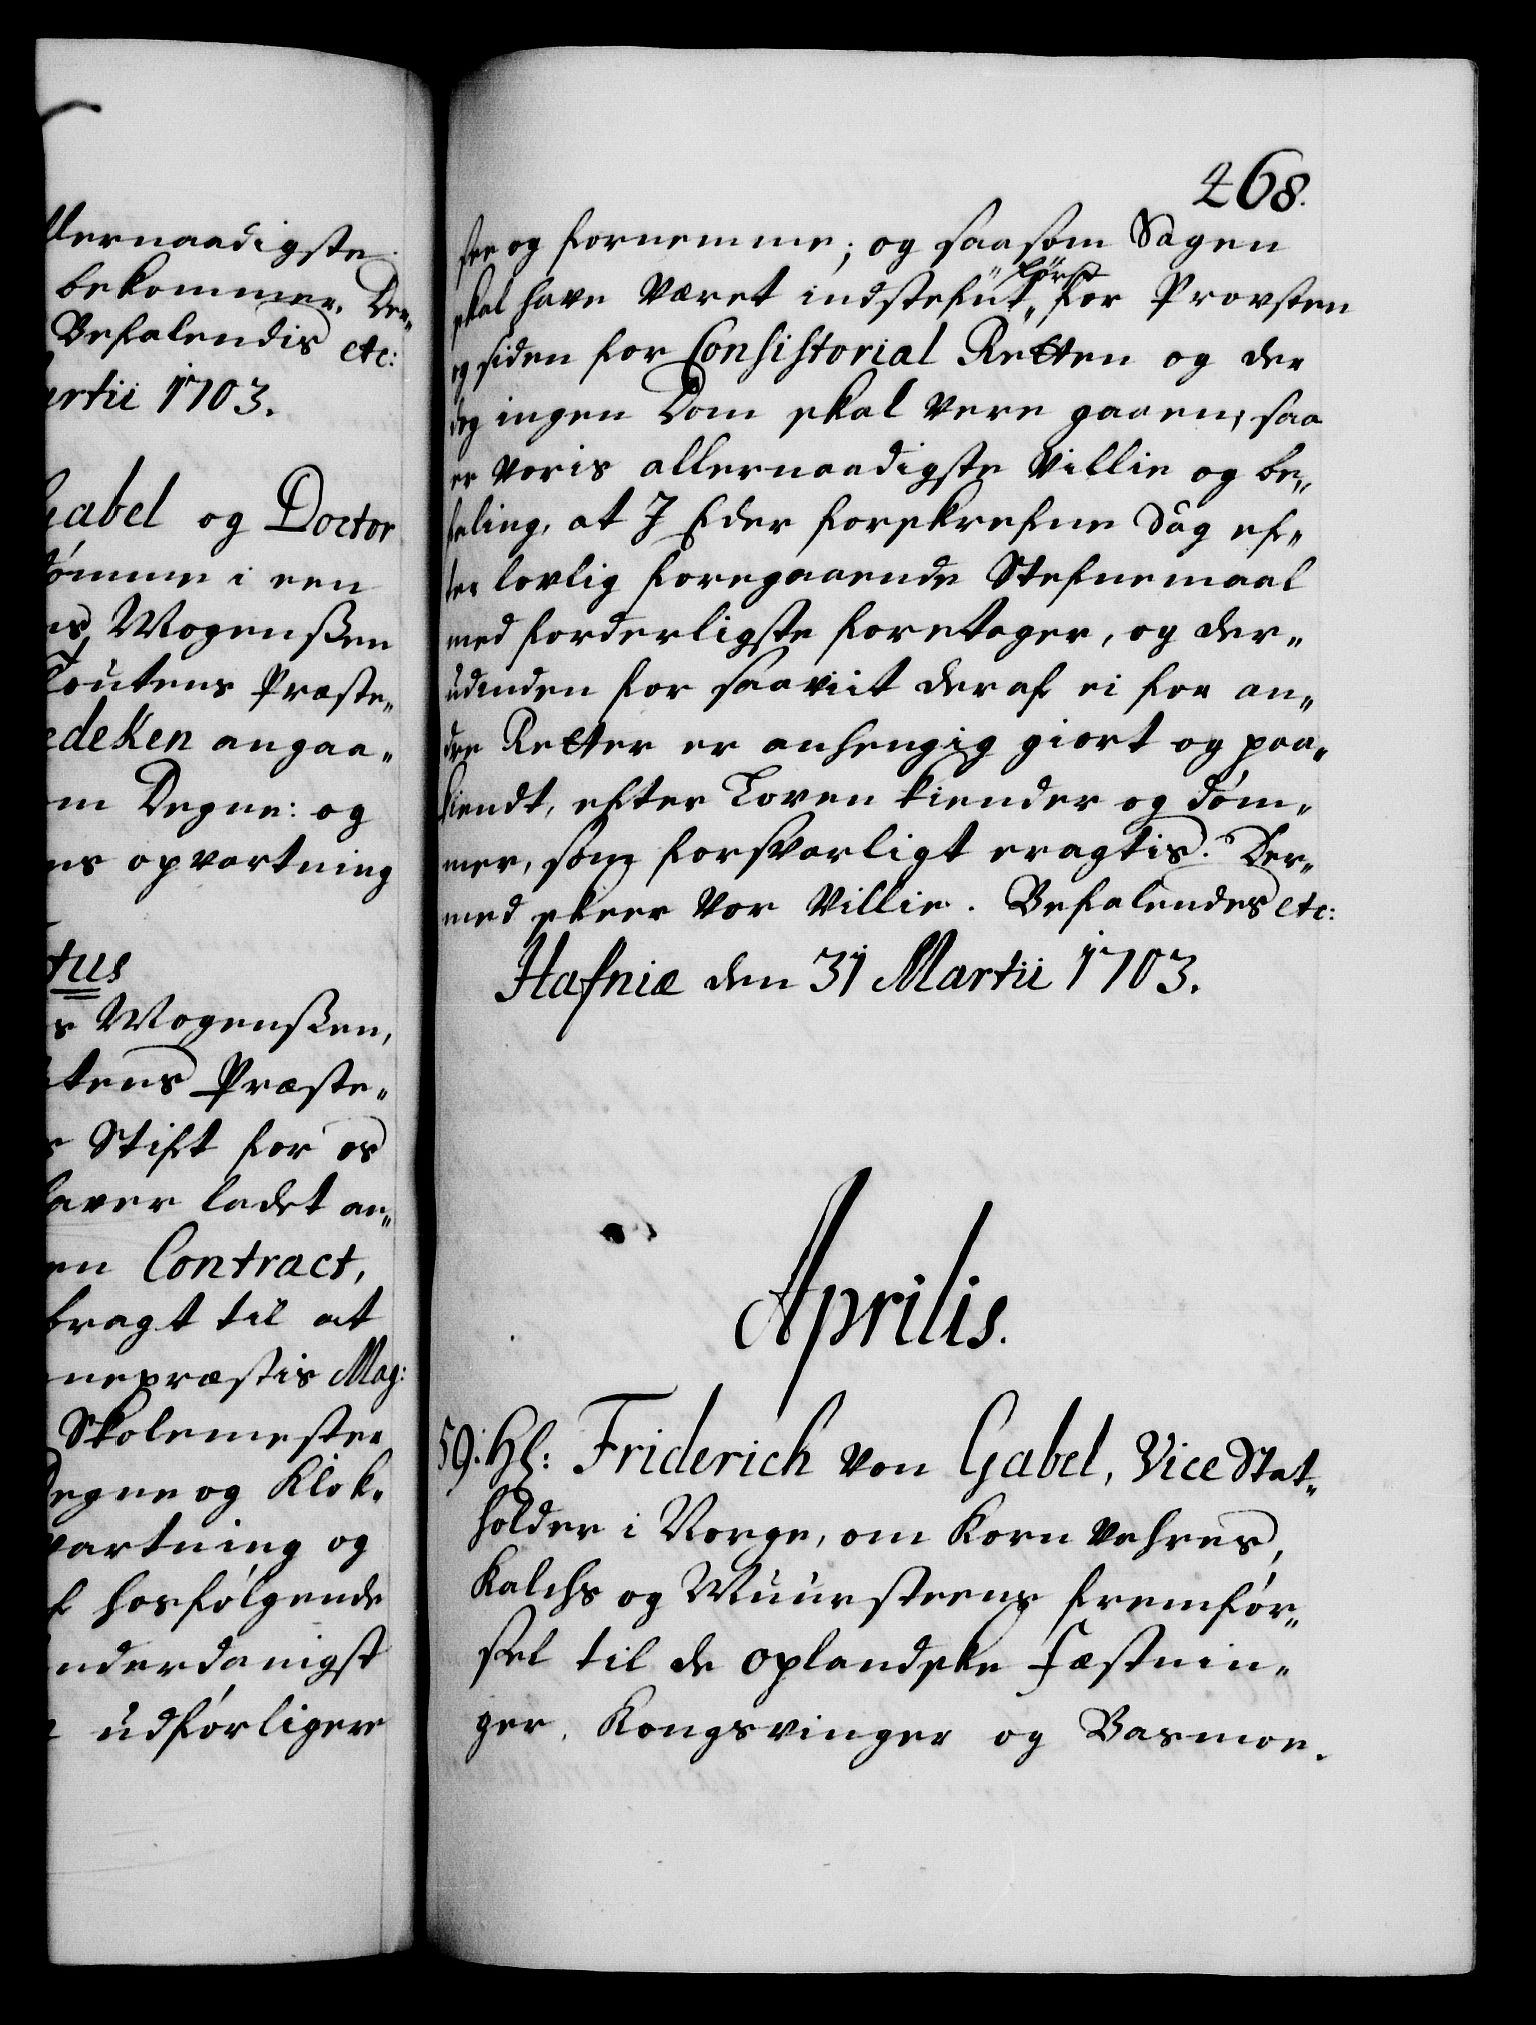 llernaadigste
bekommer. Der„
Befalendis etc:
artii 1703.
Gabel og Doctor
dómme i een
Mogenßen
Toutens Præste„
edeken angaa„
om Degne: og
ns opvartning
tus
Mogenßen,
tens Præste„
Stift for os
haver ladet an„
en Contract,
bragt til at
nepræstis Mag:
Skolemester
Degne og Klok„
vartning og
f hosfólgende
nderdanigst
udfórligere
268.
see og fornemme; og saasom Sagen
skal have været indstefnt „först„ for Provsten
og siden for Consistorial Retten og der
dog ingen Dom skal vere gaaen, saa
er voris allernaadigste villie og be„
faling, at I Eder forskrefne Sag ef„
ter lovlig foregaaende Stefnemaal
med forderligste foretager, og der„
udinden for saaviit deraf ei for an„
dre Retter er anhengig giort og paa„
kiendt, efter Loven kiender og dóm„
mer, som forsvarligt eragtis. Der„
med skeer vor villie. Befalendes etc:
Hafniæ den 31 Martii 1703.
Aprilis.
59. Hr: Friderich von Gabel, Vice Stat„
holder i Norge, om Korn vahres,
Kalchs og Muursteens fremfór„
sel til de oplandske Fæstnin„
ger, Kongsvinger og Basmoe.